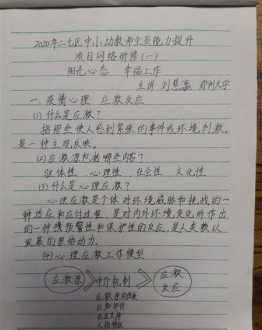 2020年二七区中小幼教师全员能力提升
项目网络研修(一)
阳光心态 幸福工作
主讲 刘慧瀛 郑州大学
一、疫情心理应激反应
(1) 什么是应激?
指那些使人感到紧张的事件或环境刺激,
是一种主观反映。
(2) 应激源包括哪些内容?
躯体性、心理性、社会性、文化性
(3) 什么是心理应激?
心理应激是个体对环境威胁和挑战的一
种适应和应付过程,是对内外环境变化所作出
的一种预警性和保护性的反应,是人类赖以
发展的原始动力。
(4) 心理应激工作模型
应激源 中介机制 应激反应
应激源的性质
认知评价
社会支持
人格特征